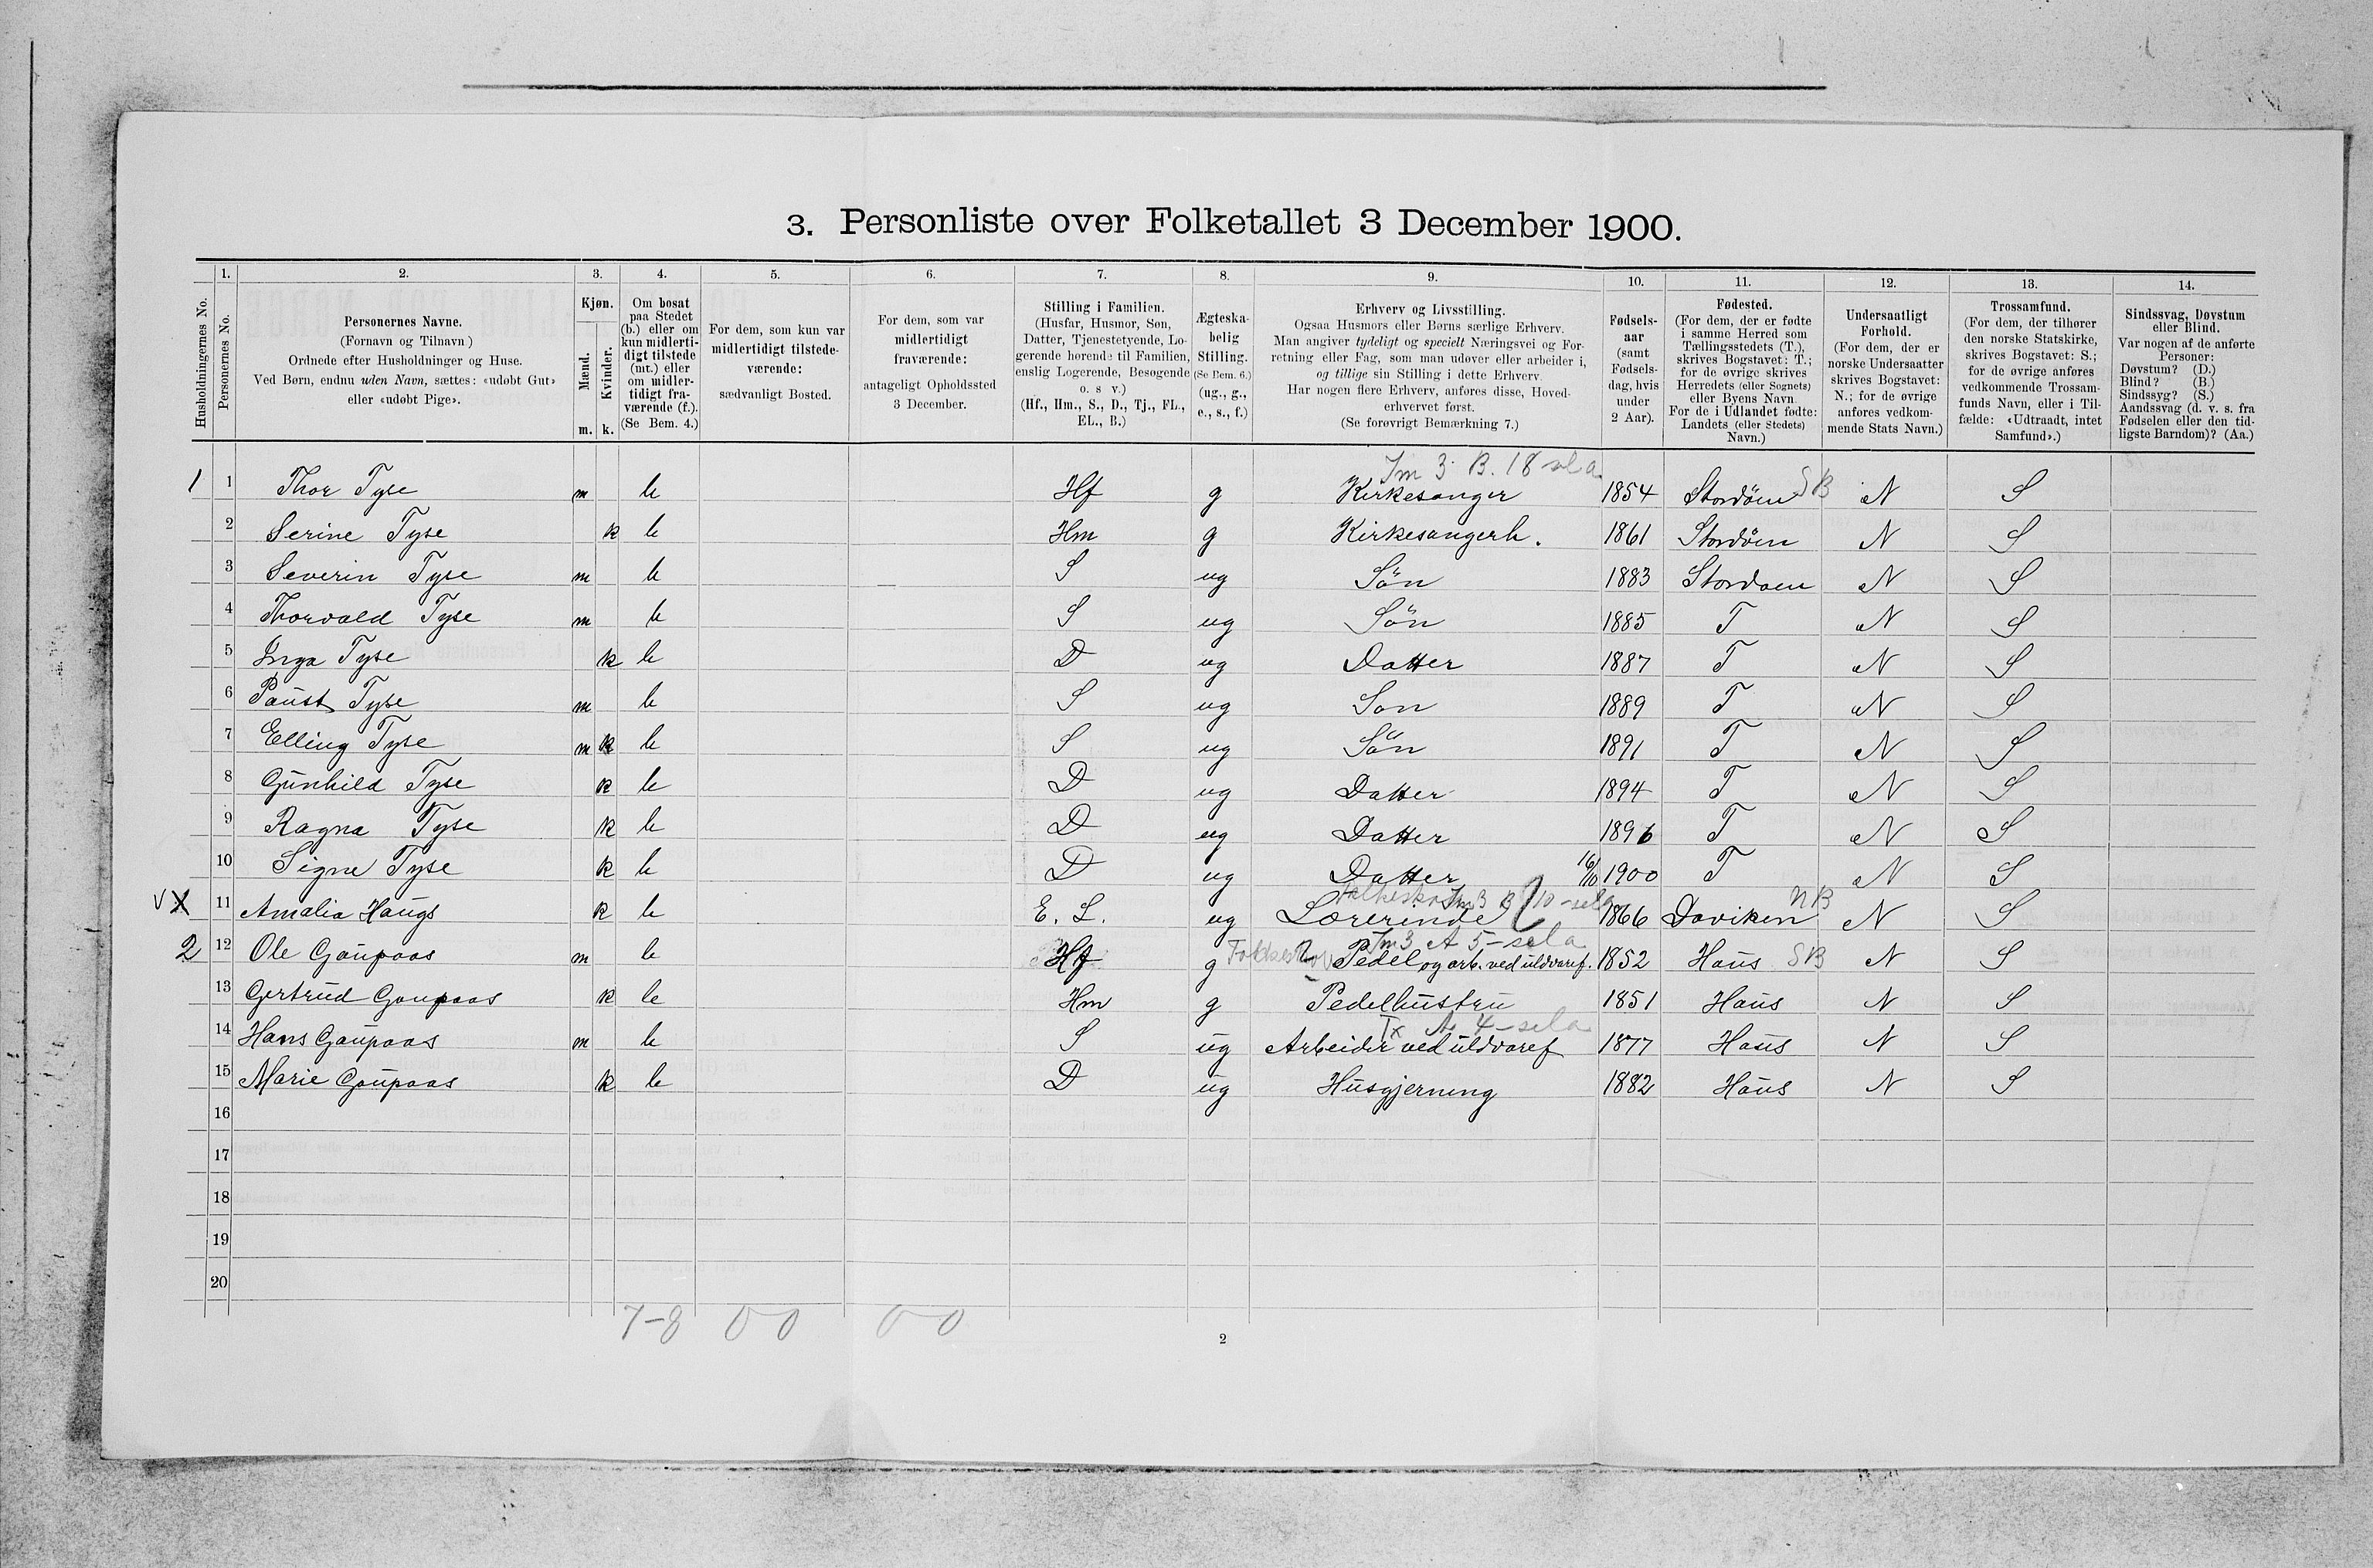 3. Personliste over Folketallet 3 December 1900.
Husholdningernes No.
1. Personernes No.
2. Personernes Navne.
(Fornavn og Tilnavn)
Ordnede efter Husholdninger og Huse.
Ved Børn, endnu uden Navn, sættes: «udøbt Gut»
eller «udøbt Pige».
3. Kjøn.
Mænd.
Kvinder.
m. k.
4. Om bosat
paa Stedet
(b.) eller om
kun midlerti-
digt tilstede
(mt.) eller
om midler-
tidigt fra-
værende (f.).
(Se Bem. 4.)
5. For dem, som kun var
midlertidigt tilstede-
værende:
sædvanligt Bosted.
6. For dem, som var
midlertidigt
fraværende:
antageligt Opholdssted
3 December.
7. Stilling i Familien.
(Husfar, Husmor, Søn,
Datter, Tjenestetyende, Lo-
gerende hørende til Familien,
enslig Logerende, Besøgende
o. s v.)
(Hf., Hm., S., D., Tj., FL.,
EL., B.)
8. Ægteska-
belig
Stilling.
(Se Bem. 6.)
(ug., g.,
e., s., f.)
9. Erhverv og Livsstilling.
Ogsaa Husmors eller Børns særlige Erhverv.
Man angiver tydeligt og specielt Næringsvei og For-
retning eller Fag, som man udøver eller arbeider i,
og tillige sin Stilling i dette Erhverv.
Har nogen flere Erhverv, anføres disse, Hoved-
erhvervet først.
(Se forøvrigt Bemærkning 7.)
10. Fødsels-
aar
(samt
Fødsels-
dag, hvis
under
2 Aar).
11. Fødested.
(For dem, der er fødte
i samme Herred som
Tællingsstedets (T.),
skrives Bogstavet: T.;
for de øvrige skrives
Herredets (eller Sognets)
eller Byens Navn
For de i Udlandet fødte:
Landets (eller Stedets)
Navn.)
12. Undersaatligt
Forhold.
(For dem, der er
norske Undersaatter
skrives Bogstavet:
N.; for de øvrige
anføres vedkom-
mende Stats Navn.)
13. Trossamfund.
(For dem, der tilhører
den norske Statskirke,
skrives Bogstavet: S.;
for de øvrige anføres
vedkommende Trossam-
funds Navn, eller i Til-
fælde: «Udtraadt, intet
Samfund».)
14. Sindssvag, Døvstum
eller Blind.
Var nogen af de anførte
Personer:
Døvstum? (D.)
Blind? (B.)
Sindssyg? (S.)
Aandssvag (d. v. s. fra
Fødselen eller den tid-
ligste Barndom)? (Aa.)
Im 3 B. 18
1 1 Thor Tyse m b Hf g Kirkesanger 1854 Stordøen SB N S
2 Serine Tyse k b Hm g Kirkesangerh. 1861 Stordøen N S
3 Severin Tyse m b S ug Søn 1883 Stordoen N S
4 Thorvald Tyse m b S ug Søn 1885 T N S
5 Inga Tyse k b D ug Datter 1887 T N S
6 Paust Tyse m b S ug Son 1889 T N S
7 Elling Tyse m k b S ug Søn 1891 T N S
8 Gunhild Tyse k b D ug Datter 1894 T N S
9 Ragna Tyse k b D ug Datter 1896 T N S
10 Signe Tyse k b D ug Datter 16/10 1900 T N S
VX 11 Amalia Haugs k b E. L. ug Lærerinde 1866 Daviken NB N S
Im 3 A 5
2 12 Ole Gaupaas m b Hf g Pedel og arb. ved uldvaref. 1852 Haus SB N S
13 Gertrud Gaupaas k b Hm g Pedelhustru 1851 Haus N S
Tx A 4
14 Hans Gaupaas m b S ug Arbeider ved uldvaref 1877 Haus N S
15 Marie Gaupaas k b D ug Husgjerning 1882 Haus N S
16
17
18
19
20
7-8 0 0 0 0
2